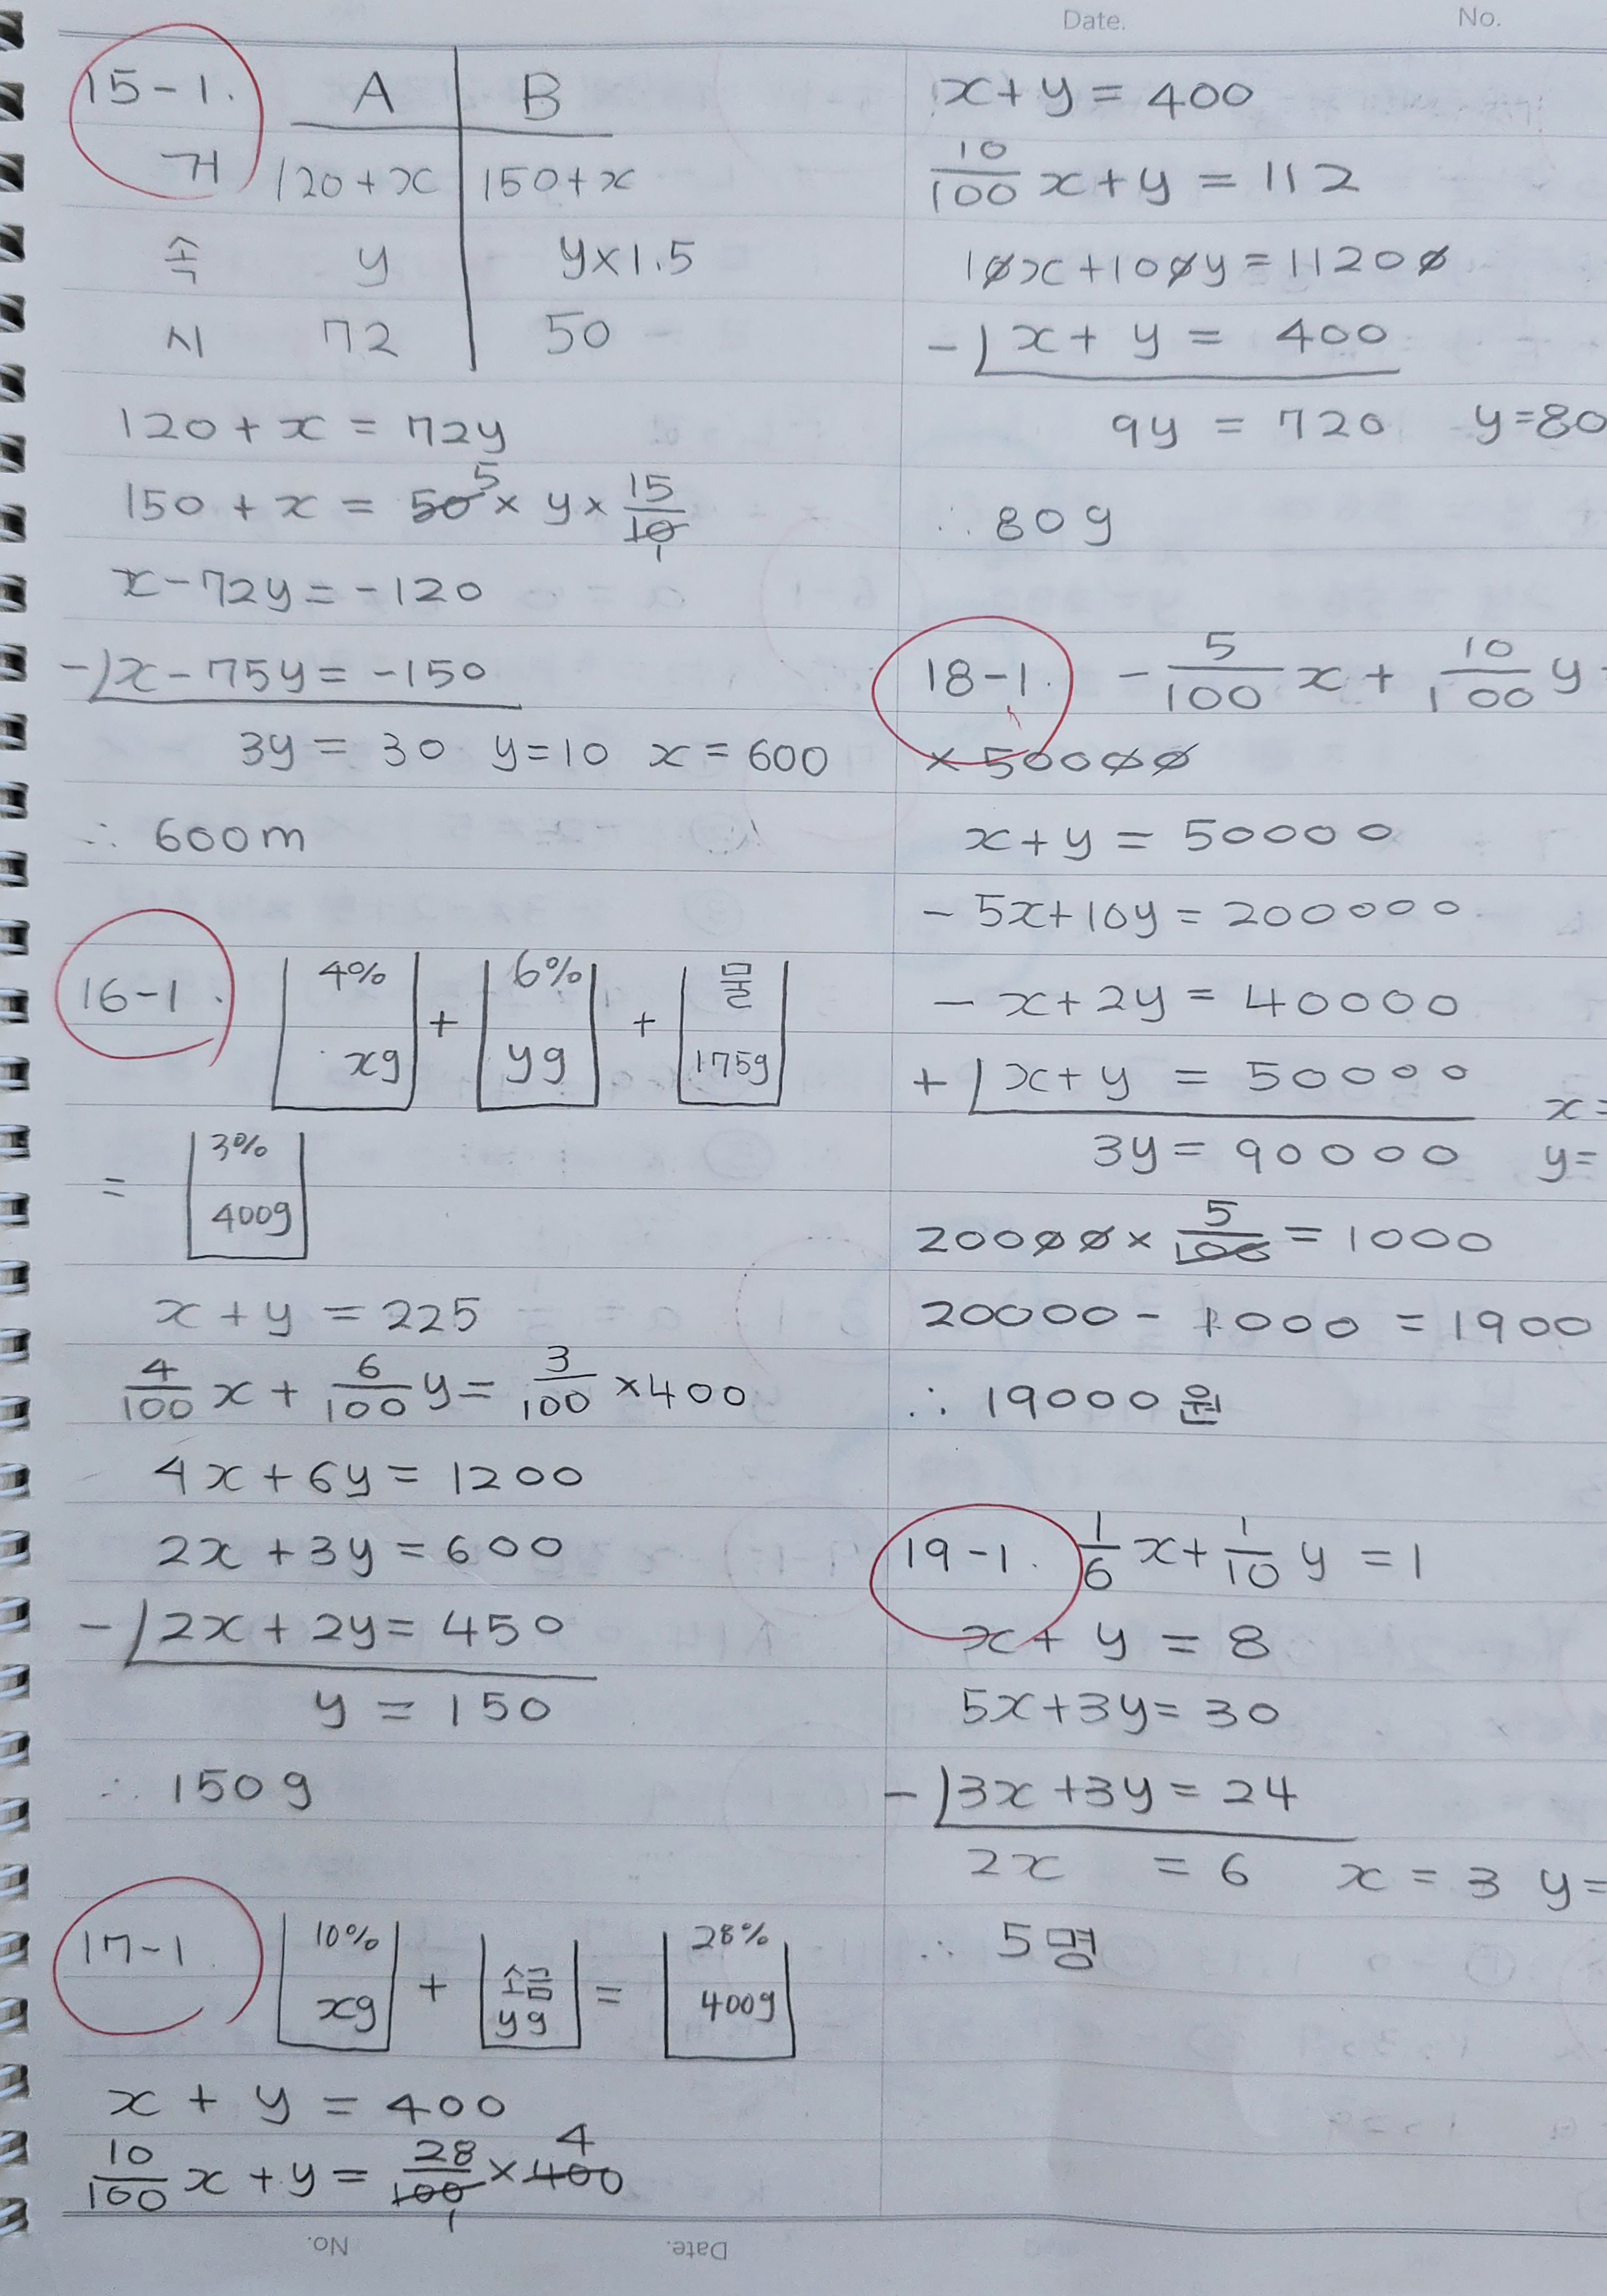 Date. No.
15-1. A B
거 120+x 150+x
속 y y×1.5
시 72 50
120+x=72y
150+x=50 5×y×15/10 1
x-72y=-120
-) x-75y=-150
3y=30 y=10 x=600
∴ 600m
16-1. 4% xg + 6% yg + 물 175g
= 3% 400g
x+y=225
4/100x+6/100y=3/100×400
4x+6y=1200
2x+3y=600
-) 2x+2y=450
y=150
∴ 150g
17-1. 10% xg + 소금 yg = 28% 400g
x+y=400
10/100x+y=28/100 1×400 4
x+y=400
10/100x+y=112
10x+100y=11200
-) x+y=400
9y=720 y=80
∴ 80g
18-1. -5/100x+10/100y
×50000
x+y=50000
-5x+10y=200000
-x+2y=40000
+) x+y=50000
x=
3y=90000 y=
20000×5/100=1000
20000-1000=1900
∴ 19000원
19-1. 1/6x+1/10y=1
x+y=8
5x+3y=30
-) 3x+3y=24
2x=6 x=3 y=
∴ 5명
No. Date.